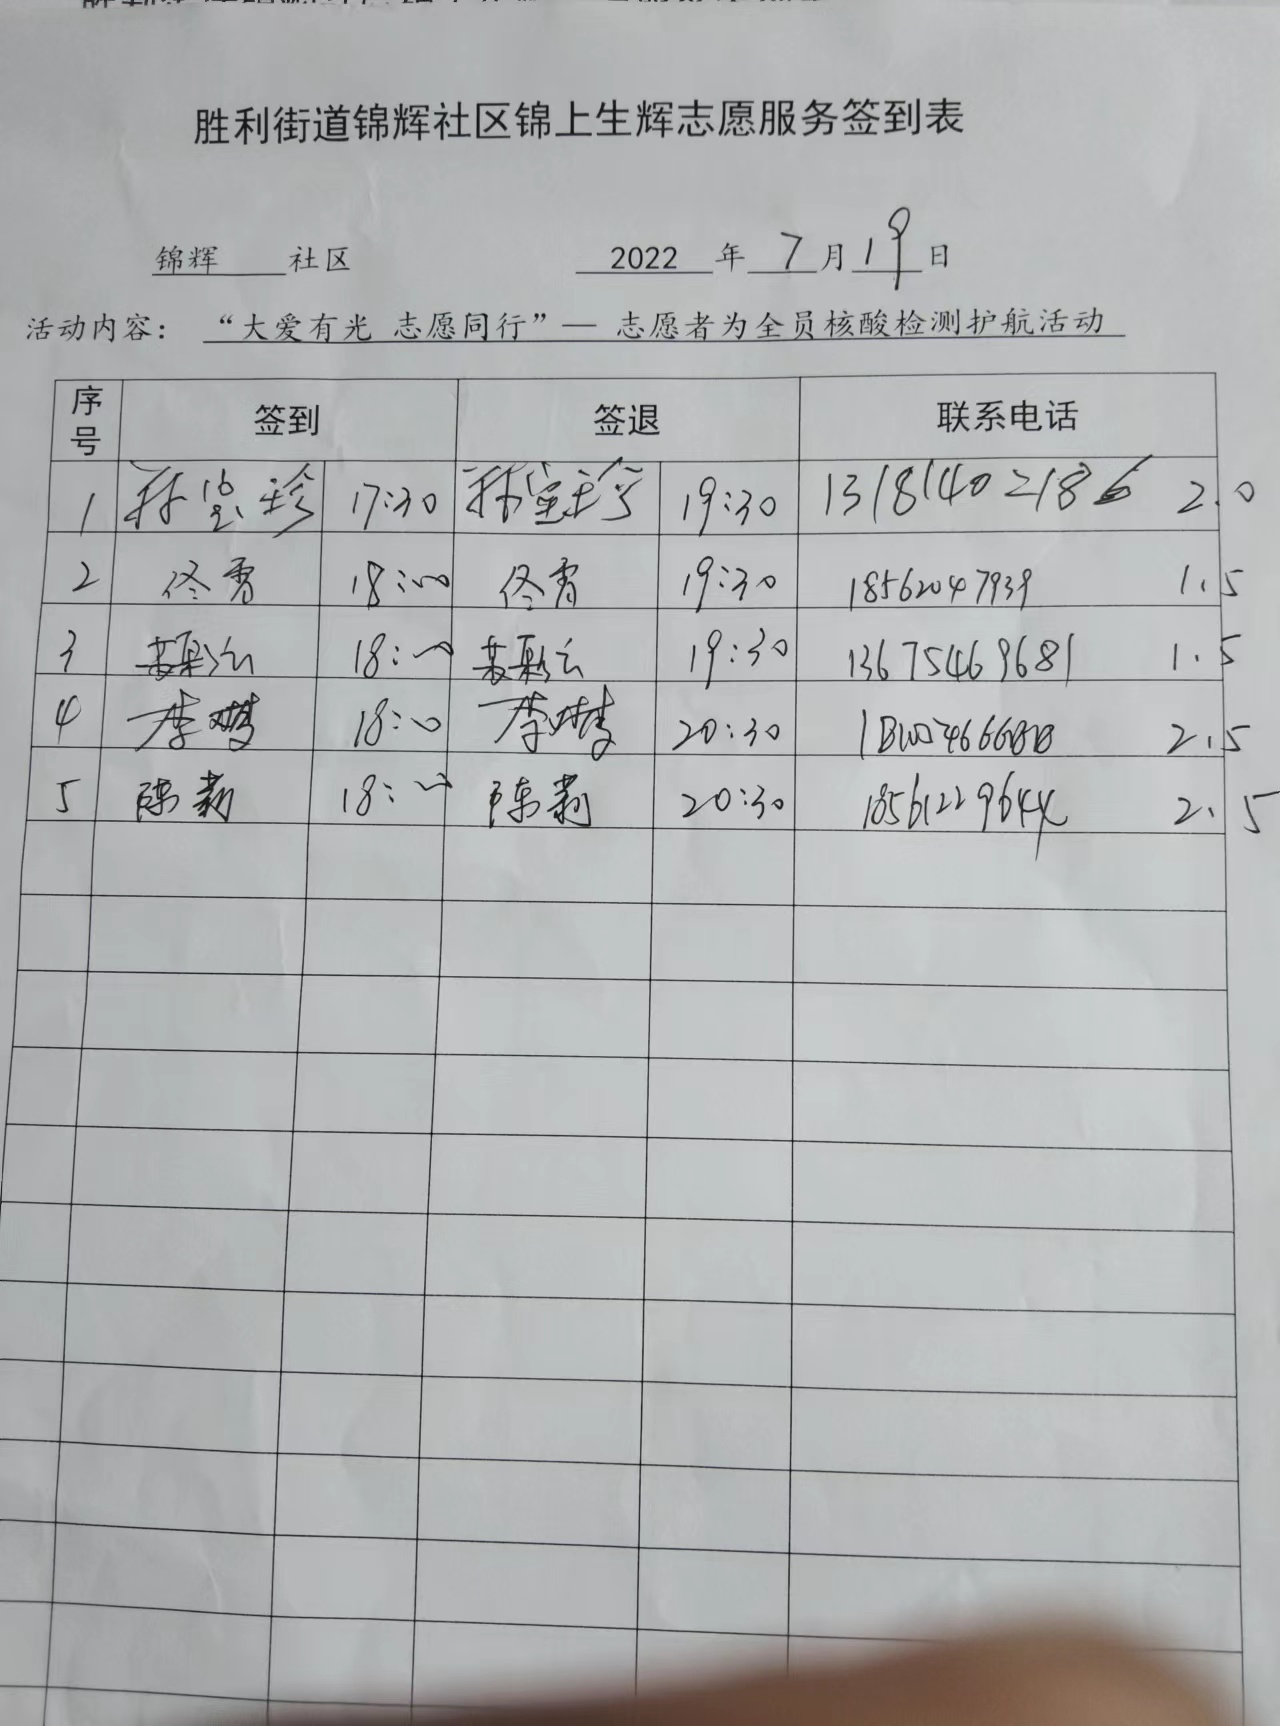 胜利街道锦辉社区锦上生辉志愿服务签到表
锦辉 社区 2022 年 7 月 19 日
活动内容： “大爱有光 志愿同行”— 志愿者为全员核酸检测护航活动
序号 签到 签退 联系电话
1 林宝珍 17:30 林宝珍 19:30 13181402186 2.0
2 佟霄 18:00 佟霄 19:30 18562047939 1.5
3 18:00 19:30 13675469681 1.5
4 李梦 18:00 李梦 20:30 2.5
5 陈莉 18:00 陈莉 20:30 18561229644 2.5